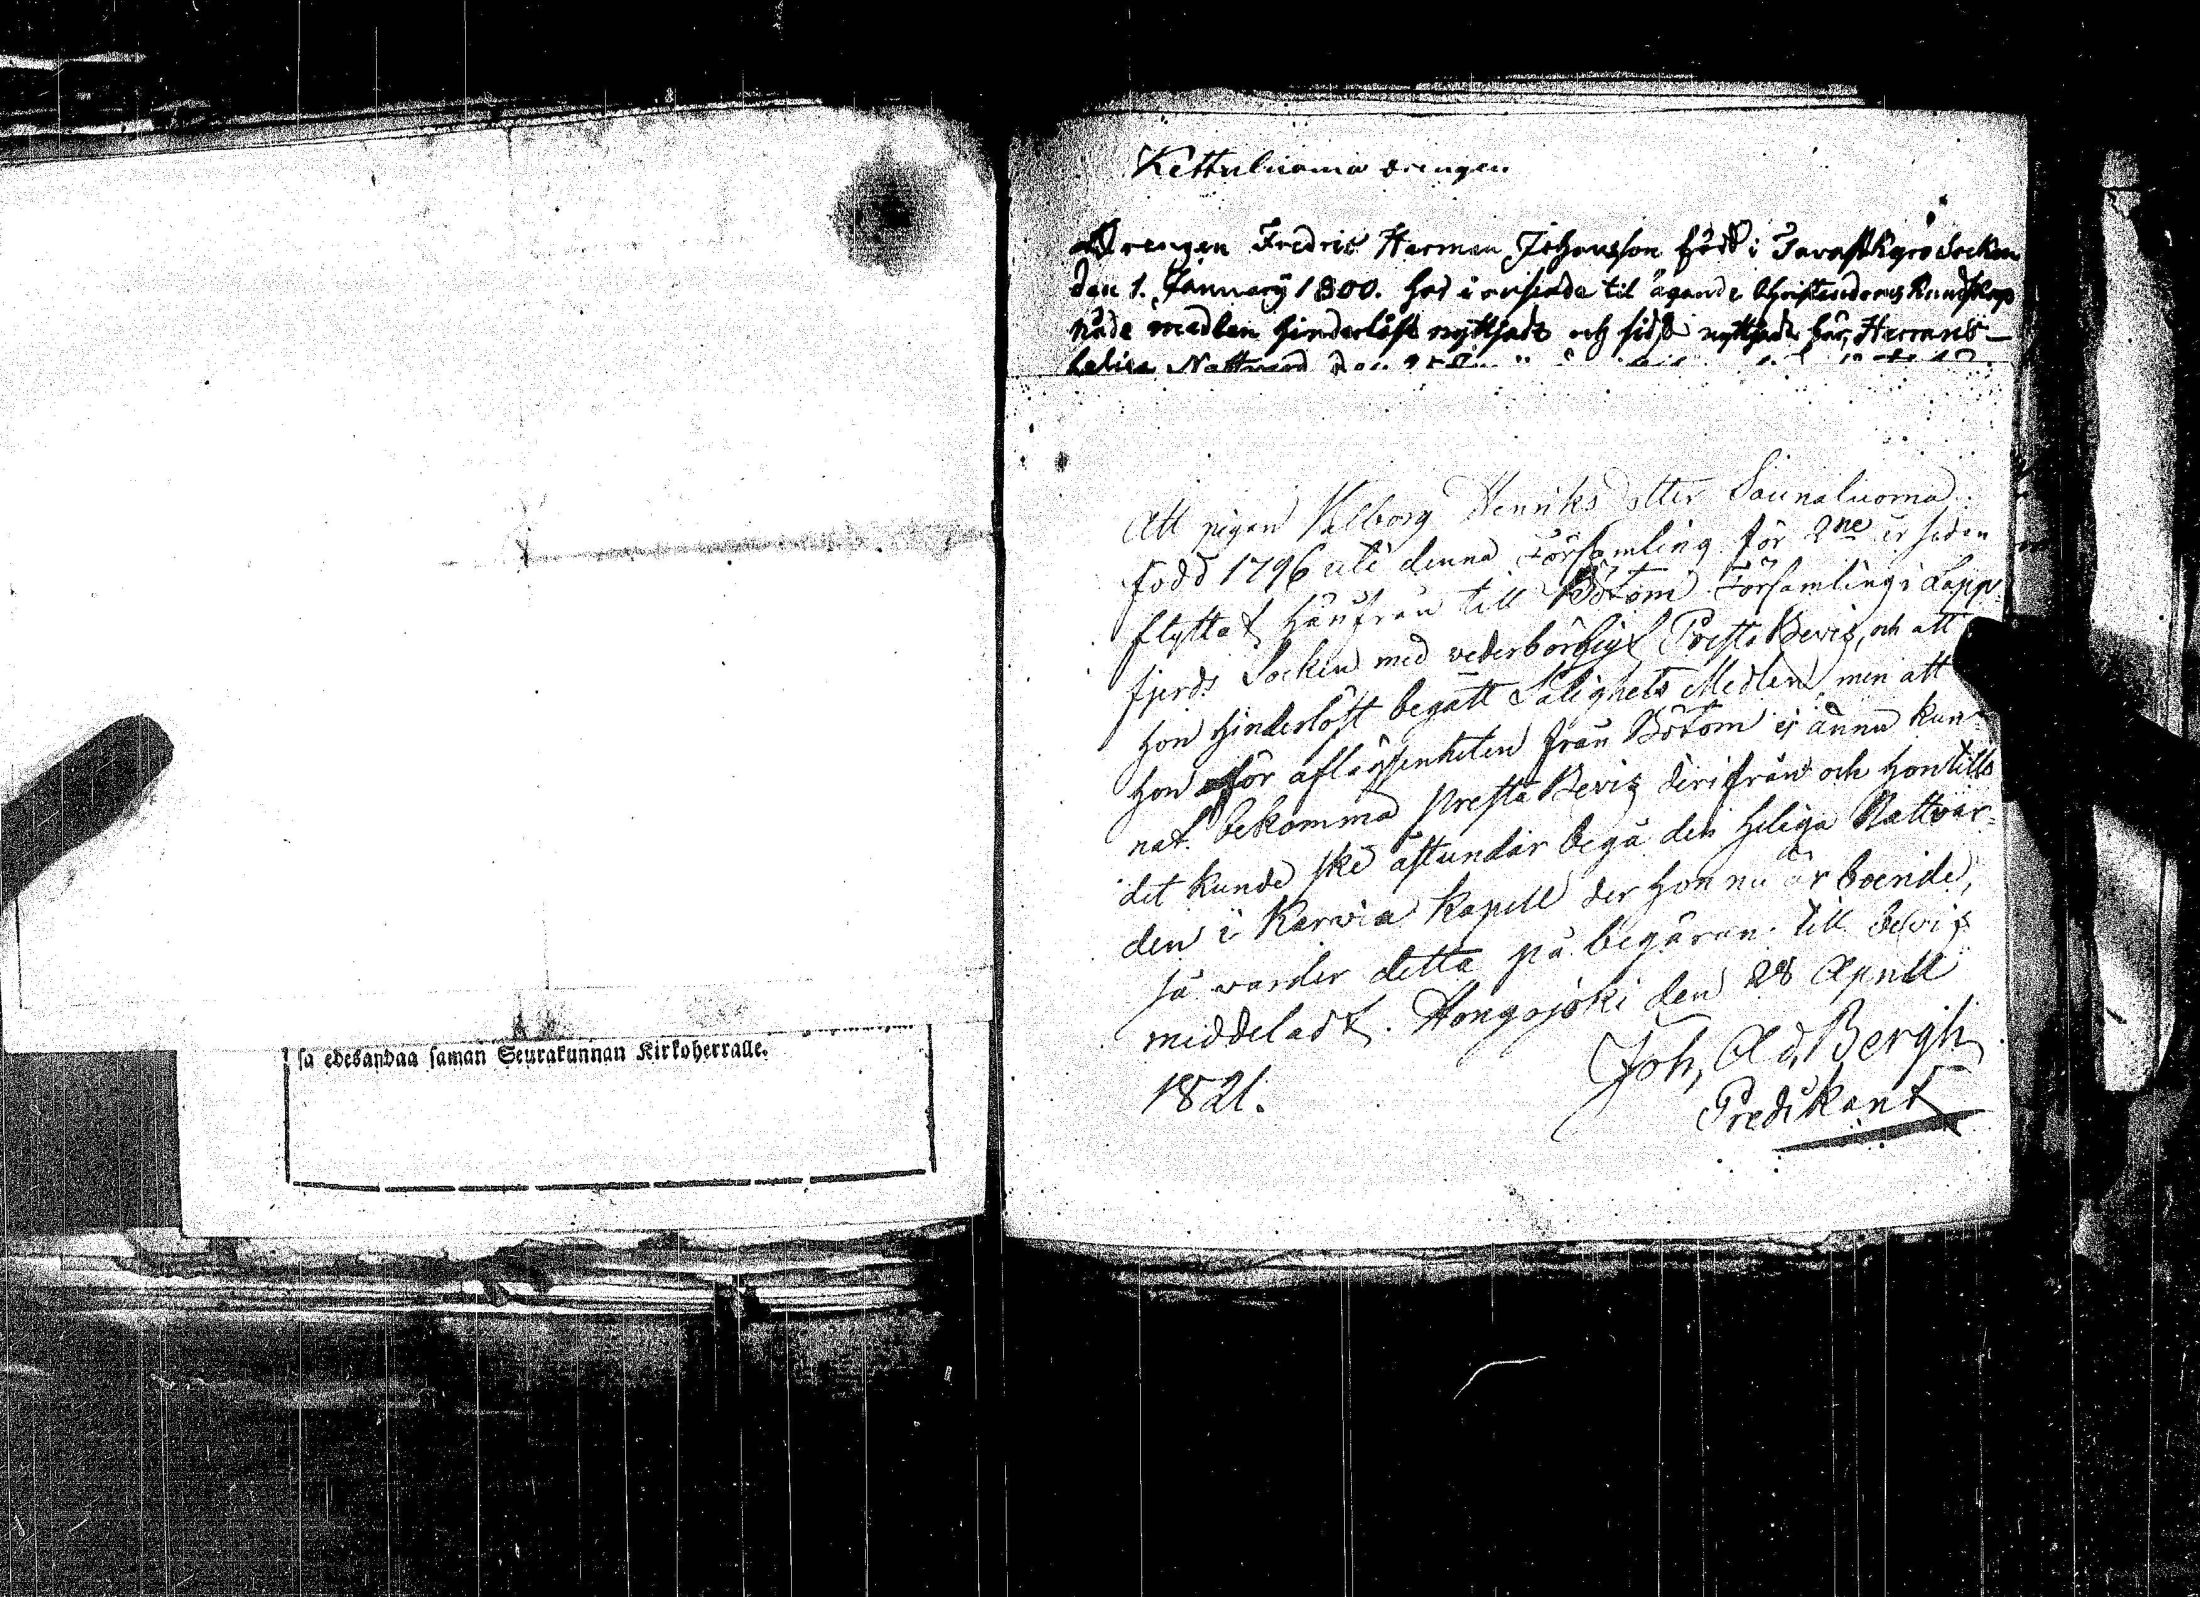 sa edesandaa saman Seurakunnan Kirkoherralle.
Kettuluoma drengen
Drengen Fredric Herman Johansson född i Tavastkyro Socken
den 1. January 1800. har i anseende til ägande Christendoms Kundskap
nåde medlen hinderlöst nyttjadt och sidst nyttjade här, Herrans
heliga Nattvard den
Att pigan Valborg Henriks dotter Saunaluoma
född 1796 uti denna Församling för 2ne år sedan
flyttat härifrån till Bötom Församling i Lapp
fjerds Socken med vederbörligt Presta Bevis, och att
hon hinderlöst begått Salighets Medlen men att
hon för aflägsenheten från Bötom ej ännu kun-
nat bekomma Presta Bevis derifrån och hon tills
det kunde ske åstundar begå den heliga Nattvar-
den i Karvia Kapell der hon nu är boende,
så varder detta på begäran till bevis
meddeladt. Hongojoki den 28 April
1821.
Joh, Ad, Bergh
Predikant